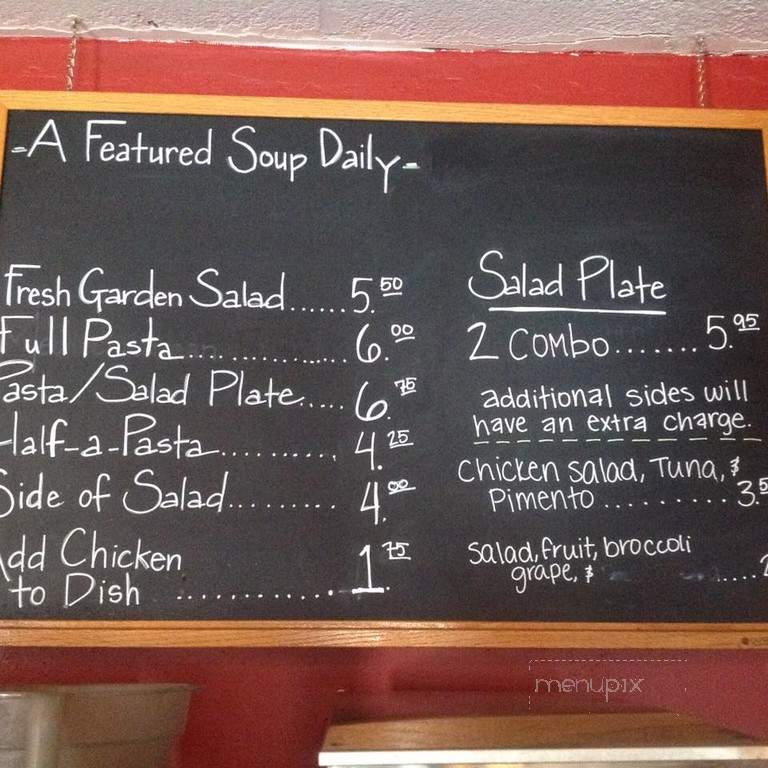 -A Featured Soup Daily-
Fresh Garden Salad......5.50
Full Pasta................6.00
Pasta/Salad Plate.....6.75
Half-a-Pasta..........4.25
Side of Salad.........4.00
Add Chicken
to Dish ............1.75
Salad Plate
2 Combo.......5.95
additional sides will
have an extra charge.
Chicken salad, Tuna, &
Pimento..........3.5
salad, fruit, broccoli
grape, & .....
menupix